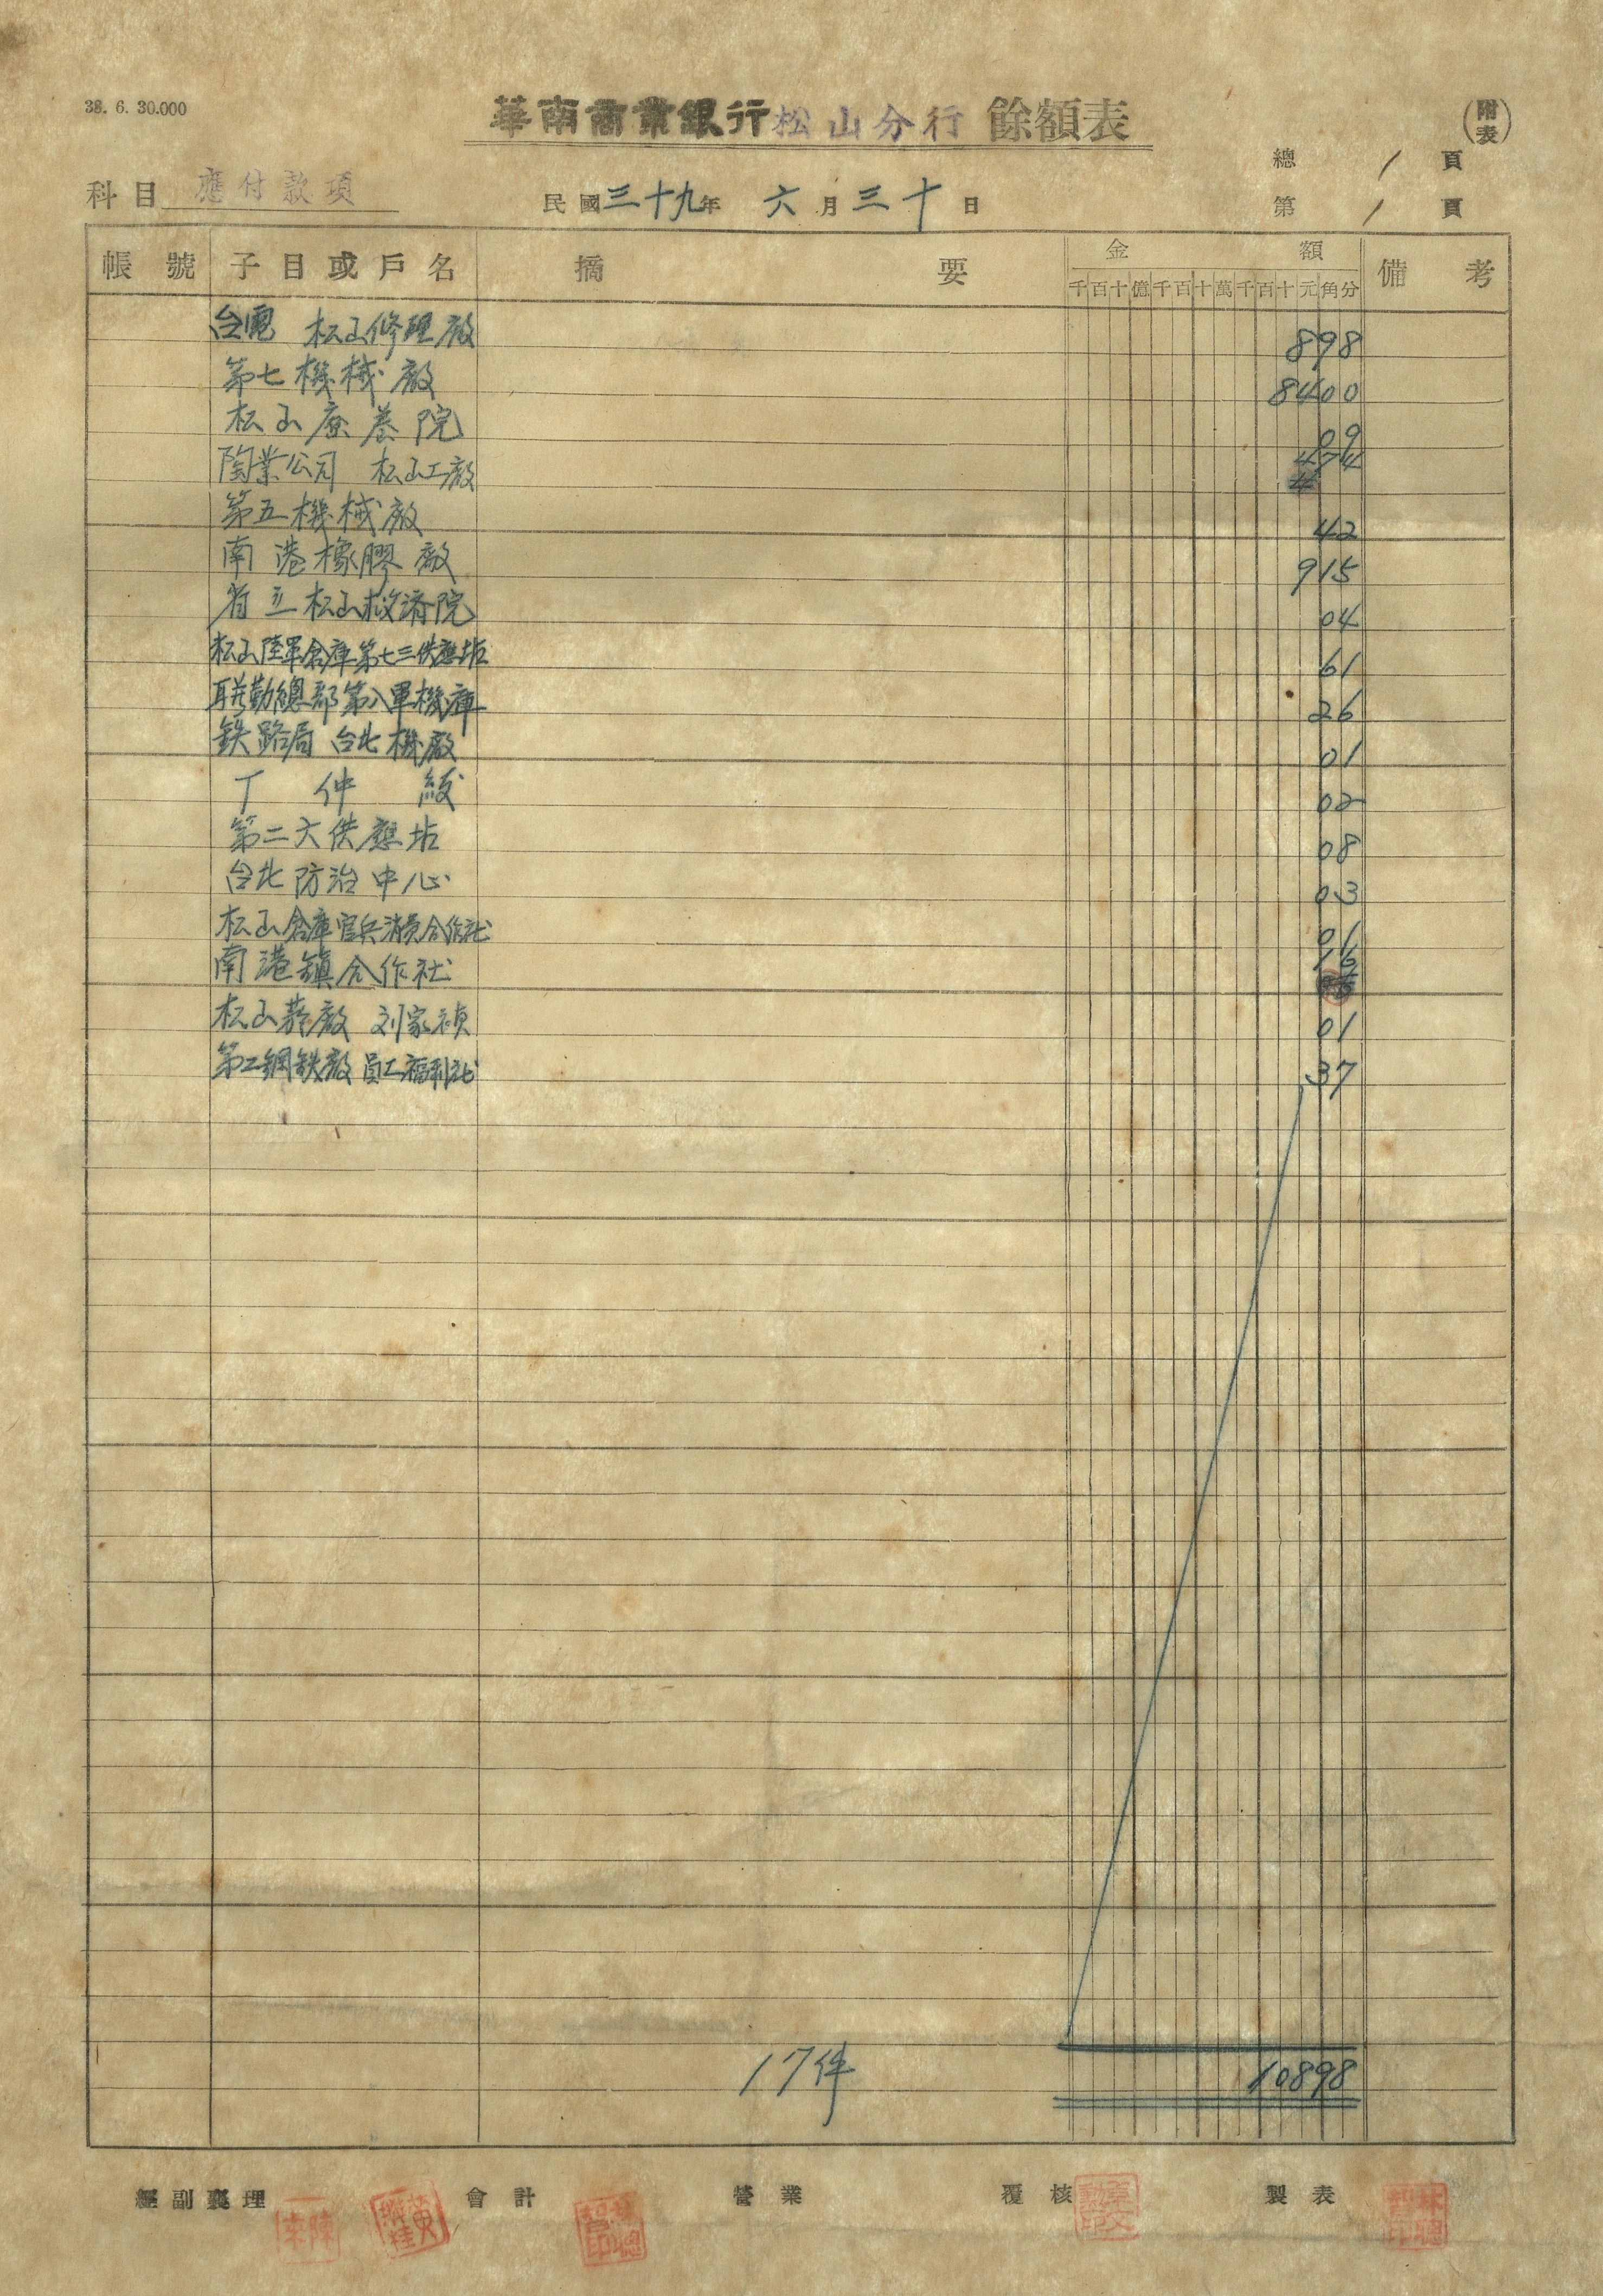 38. 6. 30.000
華南商業銀行松山分行 餘額表
(附表)
總 1 頁
科目 應付款項
民國三十九年 六月三十日
第 1 頁
帳號 子目或戶名 摘要 金額 備考
千百十億千百十萬千百十元角分
台電 松山修理廠 898
第七機械廠 8400
松山療養院 09
陶業公司 松山工廠 474
第五機械廠 42
南港橡膠廠 915
省立松山救済院 04
松山陸軍倉庫第七三供應站 61
联勤總部第八軍機庫 26
鉄路局 台北機廠 01
丁仲 02
第二六供應站 08
台北防治中心 03
松山倉庫官兵消费合作社 01
南港鎮合作社 16
松山菸廠 刘家禎 01
第二鋼鉄廠 員工福利社 37
17件 10898
經副襄理 會計 營業 覆核 製表